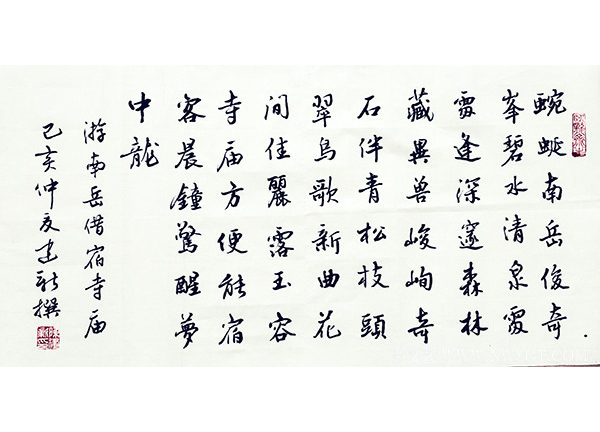 蜿蜒南岳俊奇
峯碧水清泉處
處逢深邃森林
藏異兽峻峋奇
石伴青松枝頭
翠鸟歌新曲花
间佳麗露玉容
寺庙方便能宿
客晨鐘驚醒夢
中龍
游南岳借宿寺庙
己亥仲夏建新撰